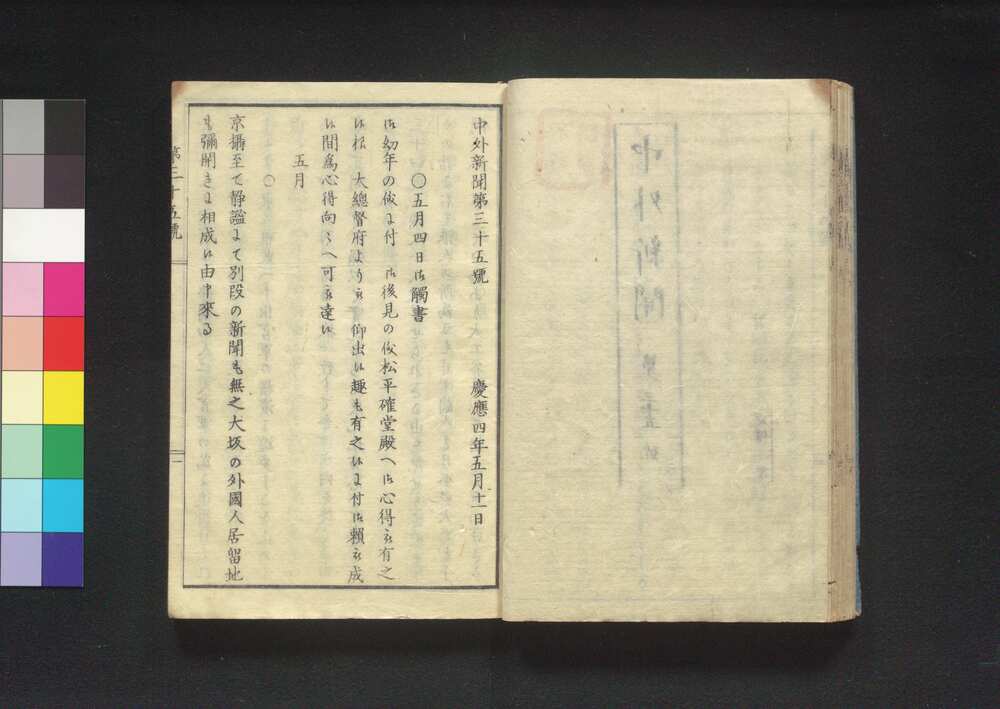 中外新聞第三十五號
慶應四年五月十一日
〇五月四日御觸書
御幼年の儀に付 御後見の儀松平確堂殿へ御心得被有之
候樣 大總督府より被 仰出候趣も有之候に付御賴被成
候間爲心得向々へ可被達候
五月
京攝至て靜謐にて別段の新聞も無之大坂の外國人居留地
も彌開きに相成候由申來る
第三十五號
一
中外新聞